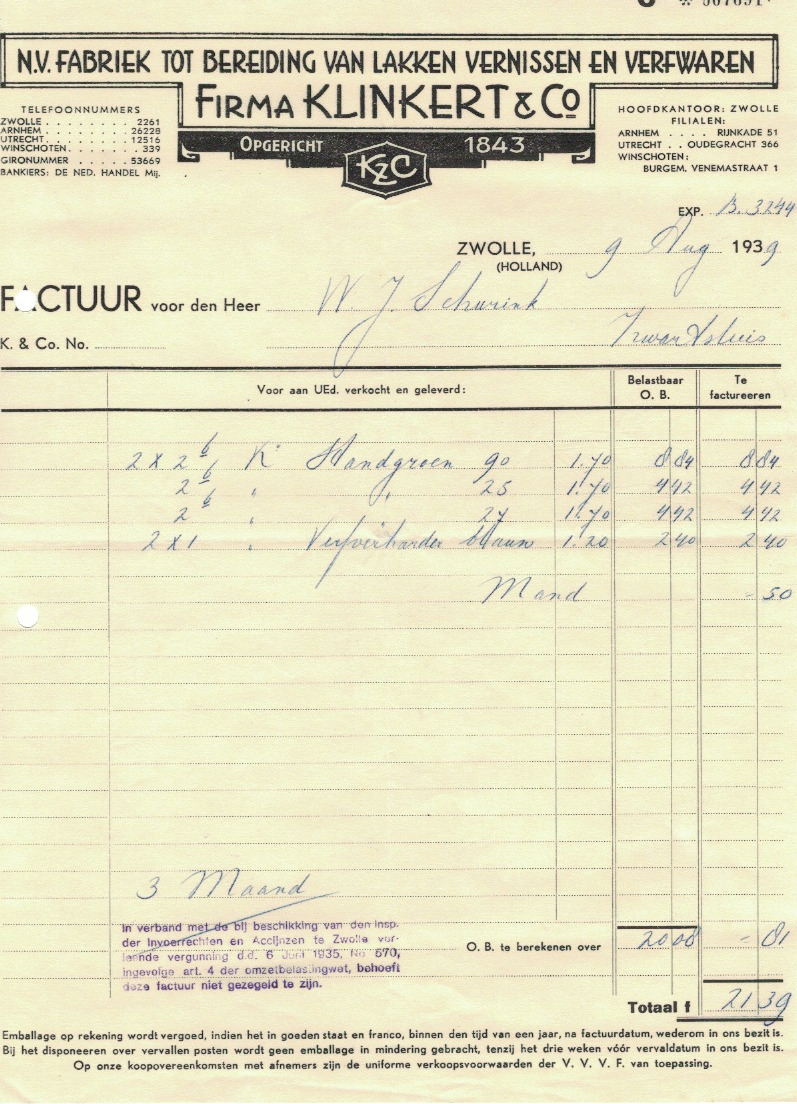 N.V. FABRIEK TOT BEREIDING VAN LAKKEN VERNISSEN EN VERFWAREN
FIRMA KLINKERT & Co
OPGERICHT 1843
KZC
TELEFOONNUMMERS
ZWOLLE . . . . . . . . 2261
ARNHEM . . . . . . . 26228
UTRECHT . . . . . . . 12516
WINSCHOTEN . . . . . . . 339
GIRONUMMER . . . . . 53669
BANKIERS: DE NED. HANDEL Mij.
HOOFDKANTOOR: ZWOLLE
FILIALEN:
ARNHEM . . . . RIJNKADE 51
UTRECHT . . OUDEGRACHT 366
WINSCHOTEN:
BURGEM. VENEMASTRAAT 1
EXP. B. 3244
ZWOLLE, 9 Aug 1939
(HOLLAND)
FACTUUR voor den Heer W. J. Schurink
K. & Co. No. Zwartsluis
Voor aan UEd. verkocht en geleverd: Belastbaar O. B. Te factureeren
2 x 2 6 K° Standgroen 90 1.70 8 84 8 84
2 6 " " 25 1.70 4 42 4 42
2 6 " 27 1.70 4 42 4 42
2 x 1 " Verfverharder blauw 1.20 2 40 2 40
Mand - 50
3 Maand
In verband met de bij beschikking van den insp.
der Invoerrechten en Accijnzen te Zwolle ver-
leende vergunning d.d. 6 Juni 1935, No 570,
ingevolge art. 4 der omzetbelastingwet, behoeft
deze factuur niet gezegeld te zijn.
O. B. te berekenen over 20 08 - 81
Totaal f 21 39
Emballage op rekening wordt vergoed, indien het in goeden staat en franco, binnen den tijd van een jaar, na factuurdatum, wederom in ons bezit is.
Bij het disponeeren over vervallen posten wordt geen emballage in mindering gebracht, tenzij het drie weken vóór vervaldatum in ons bezit is.
Op onze koopovereenkomsten met afnemers zijn de uniforme verkoopsvoorwaarden der V. V. V. F. van toepassing.